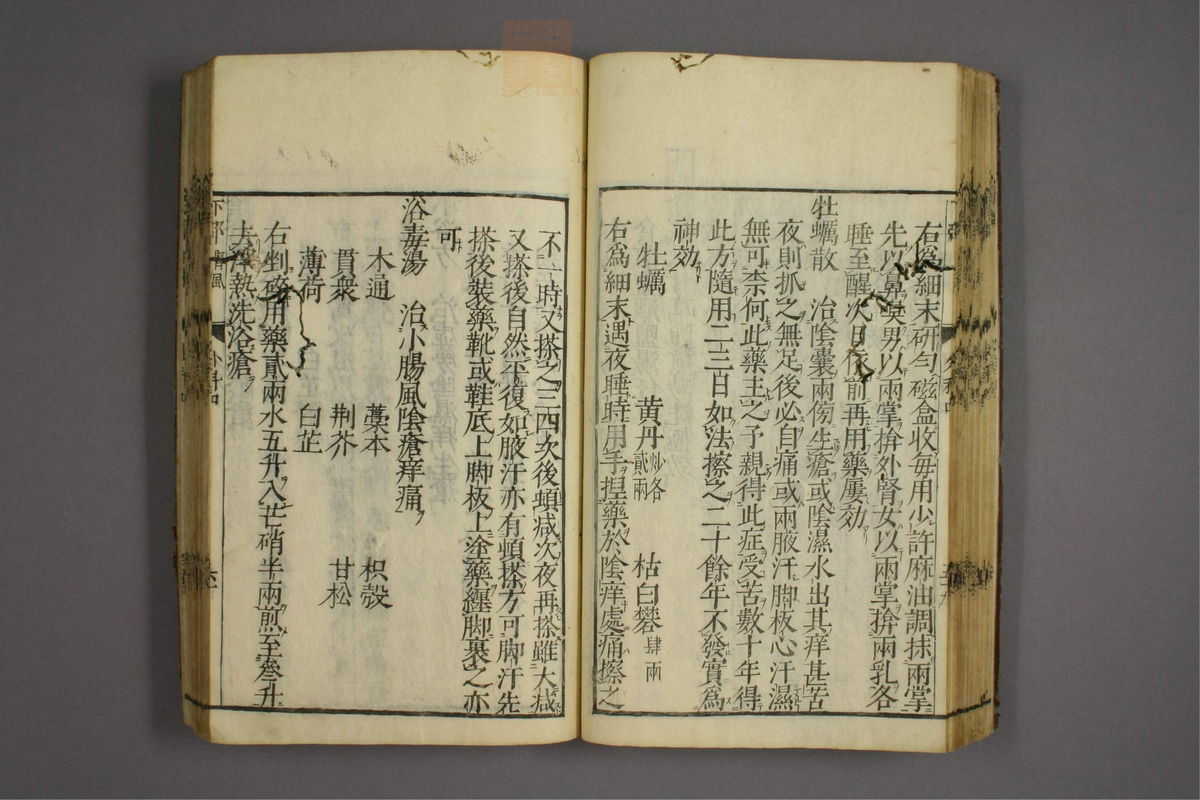 右爲細末研勻磁盒收每用少許麻油調抹兩掌
先以鼻嗅男以兩掌揜外腎女以兩掌揜兩乳各
睡至醒次日依前再用藥屢効
牡蠣散　治陰囊兩傍生瘡或陰濕水出其痒甚苦
夜則抓之無足後必自痛或兩腋汗脚板心汗濕
無可柰何此藥主之予親得此症受苦數十年得
此方隨用二三日如法擦之二十餘年不發實爲
神効
牡蠣　黄丹炒各貳兩　枯白礬肆兩
右爲細末遇夜睡時用手捏藥於陰痒處痛擦之
不一時又搽之三四次後頓减次夜再搽雖大减
又搽後自然平復如腋汗亦有頓搽方可脚汗先
搽後装藥靴或鞋底上脚板上塗藥纏脚裹之亦
可
浴毒湯　治小腸風陰瘡痒痛
木通　藁本　枳殼
貫衆　荆芥　甘松
薄荷　白芷
右剉碎用藥貳兩水五升入芒硝半兩煎至叁升
去滓熱洗浴瘡